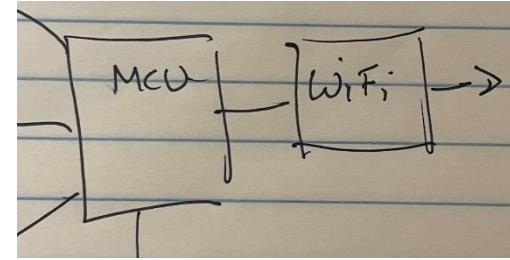 MCU
WiFi